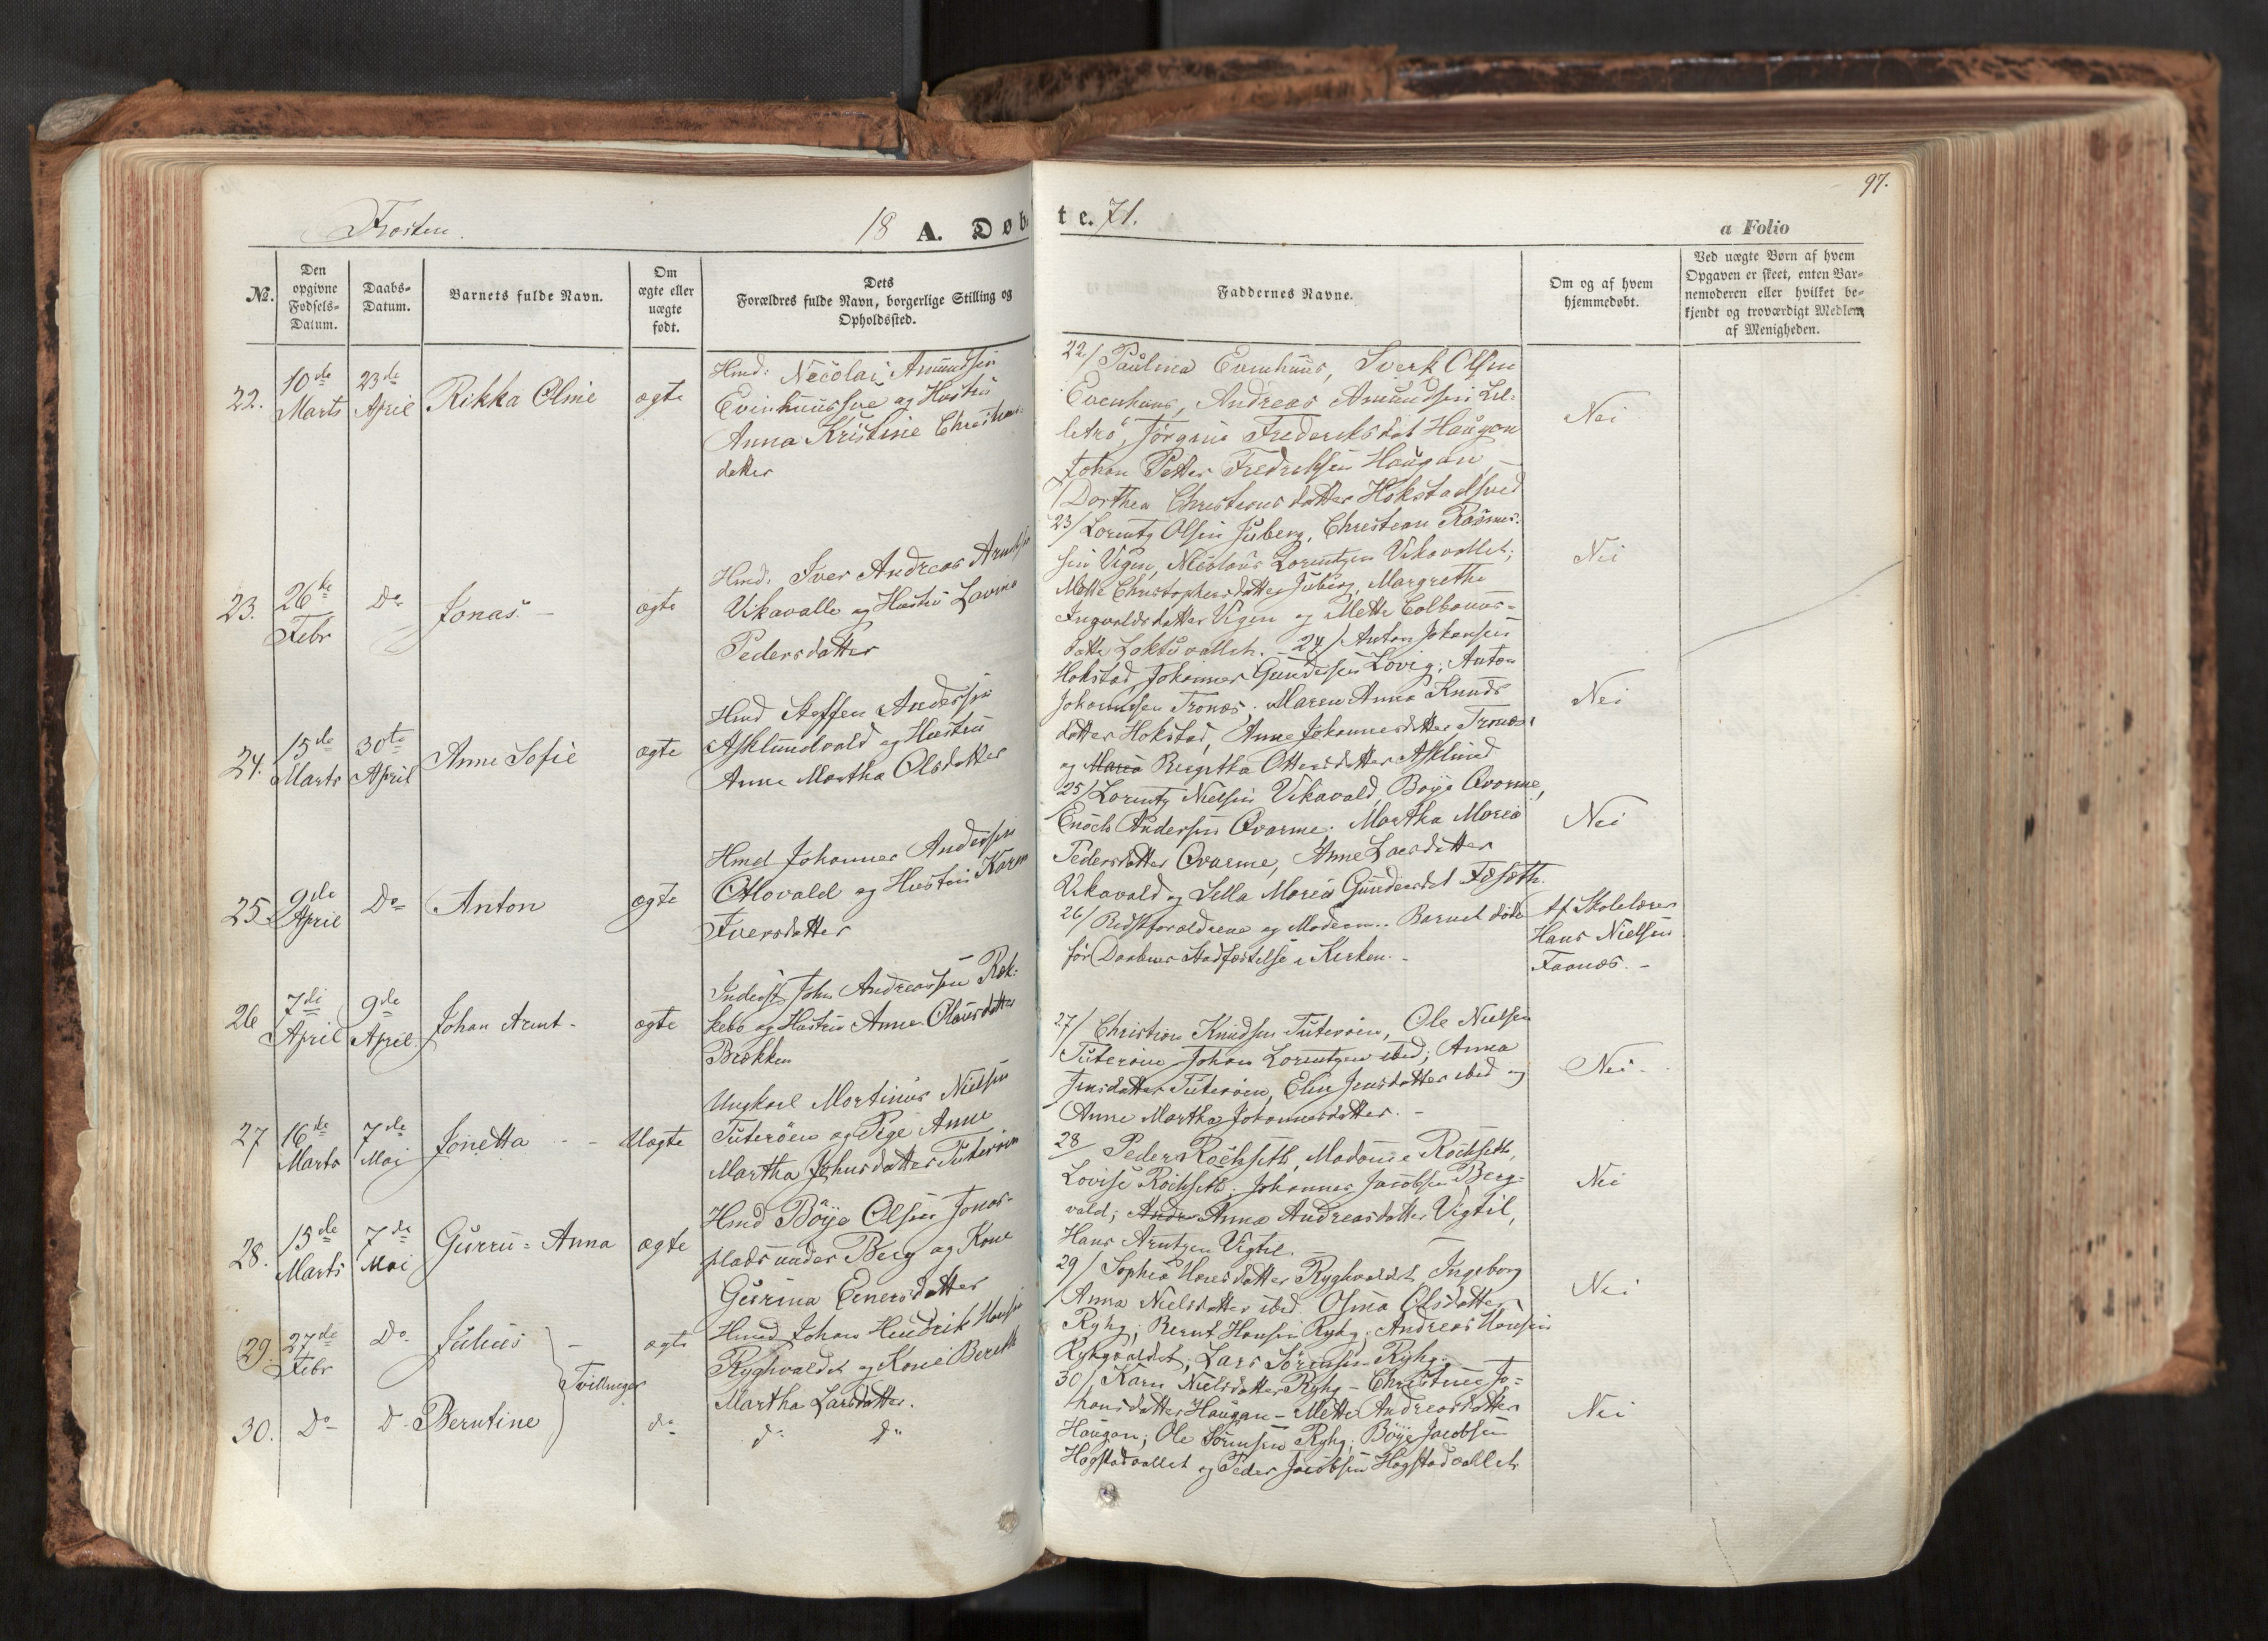 97.
Frosten.
18 A. Døb
t e. 71.
a Folio
No.
Den opgivne Fødsels-Datum.
Daabs-Datum.
Barnets fulde Navn.
Om ægte eller uægte født.
Dets Forældres fulde Navn, borgerlige Stilling og Opholdssted.
Faddernes Navne.
Om og af hvem hjemmedøbt.
Ved uægte Børn af hvem Opgaven er skeet, enten Barnemoderen eller hvilket bekjendt og troværdigt Medlem af Menigheden.
22. 10de Marts
23de April
Rikka Oline
ægte
Hmd: Nicolai Amundsen
Evinhuus og Hustru
Anna Kristine Christians-
datter
23. 26de Febr
Do
Jonas
ægte
Hmd: Iver Andreas
Vikavalle og Hustru
Pedersdatter
24. 15de Marts
30te April
Anne Sofie
ægte
Hmd Steffen Anderssen
Asklundvald og Hustru
Anne Martha Olsdatter
25. 9de April
Do
Anton
ægte
Hmd Johannes Anderssen
og Hustru Karen
Iversdatter
26 7de April
9de April
Johan Arnt
ægte
Inderst John Andreassen Rek-
kebo og Hustru Anne Olausdatter
Brekken
27 16de Marts
7de Mai
Jonetta
Uægte
Ungkarl Martinus Nielsen
Tuterøen og Pige Anne
Martha Johnsdatter Tuterøen
28. 15de Marts
7de Mai
Gurru=Anna
ægte
Hmd Böye Olsen Jonas-
plads under Berg og Kone
Gurina Einersdatter
29. 27de Febr
Do
Julius
ægte
Hmd Johan Hendrik Hansen
Ryghvaldet og Kone Bereth
Martha Larsdatter.
Tvillinger
30. Do
Do
Berntine
do
do do
22/ Paulina Evenhuus, Sverk Olsen
Evenhuus, Andreas Amundsen Lil-
letrø, Jørgine Frederiksdat Haugan
Johan Petter Fredriksen Haugan,
Dorthea Christensdatter Hokstad
23/ Lorentz Olsen Juberg, Christian Rasmus-
sen Vigen, Nicolaus Lorentzen Vikavallet;
Mette Christophersdatter Juberg, Margrethe
Ingvaldsdatter Vigen og Mette Colbanus-
datter 24/ Anton Johansen
Hokstad Johannes Gundersen Lovig; Anton
Johannesen Tronæs; Maren Anna Knuds
datter Hokstad, Anne Johannesdatter Tronæs
og Maria Beretha Ottersdatter Asklund
25/ Lorentz Nielsen Vikavald, Böye Qvarme,
Enoch Andersen Qvarme; Martha Maria
Pedersdatter Qvarme, Anne Larsdatter
Vikavald og Sella Maria Gundersdat Fæsæth.
26/ Bedstforældrene og Moderen. Barnet døde
før Daabens Stadfæstelse i Kirken.
27/ Christian Knudsen Tuterøen, Ole Nielsen
Tuterøen Johan Lorentzen ibid; Anna
Jensdatter Tuterøen, Elen Jensdatter ibid og
Anne Martha Johannesdatter.
28/ Peder Rochseth, Madame Rochseth,
Lovise Rochseth; Johannes Jacobsen Berg-
vald; Andr Anna Andreasdatter Vigtil,
Hans Arntzen Vigtil.
29/ Sophia Hansdatter Ryghvaldet, Ingeborg
Anna Nielsdatter ibid. Olina Olsdatter
Rykg; Bernt Hansen Rykg; Andreas Hansen
Rykgvaldet; Lars Sörensen Rykg.
30/ Karn Nielsdatter Rykg - Christine Jo-
hansdatter Haugan - Mette Andreasdatter
Haugan; Ole Sörensen Rykg; Böye Jacobsen
Hogstadvallet og Peder Jacobsen Hogstadvallet
Nei
Nei
Nei
Nei
Af Skolelærer
Hans Nielsen
Faanæs.
Nei
Nei
Nei
Nei